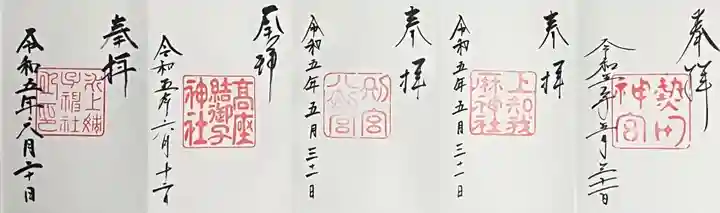 奉拝
熱田
神宮
令和五年五月三十一日
奉拝
上知我
麻神社
令和五年五月三十一日
奉拝
別宮
八剣宮
令和五年五月三十一日
奉拝
高座
結御子
神社
令和五年六月十
奉拝
氷上姉
子神社
令和五年六月二十日